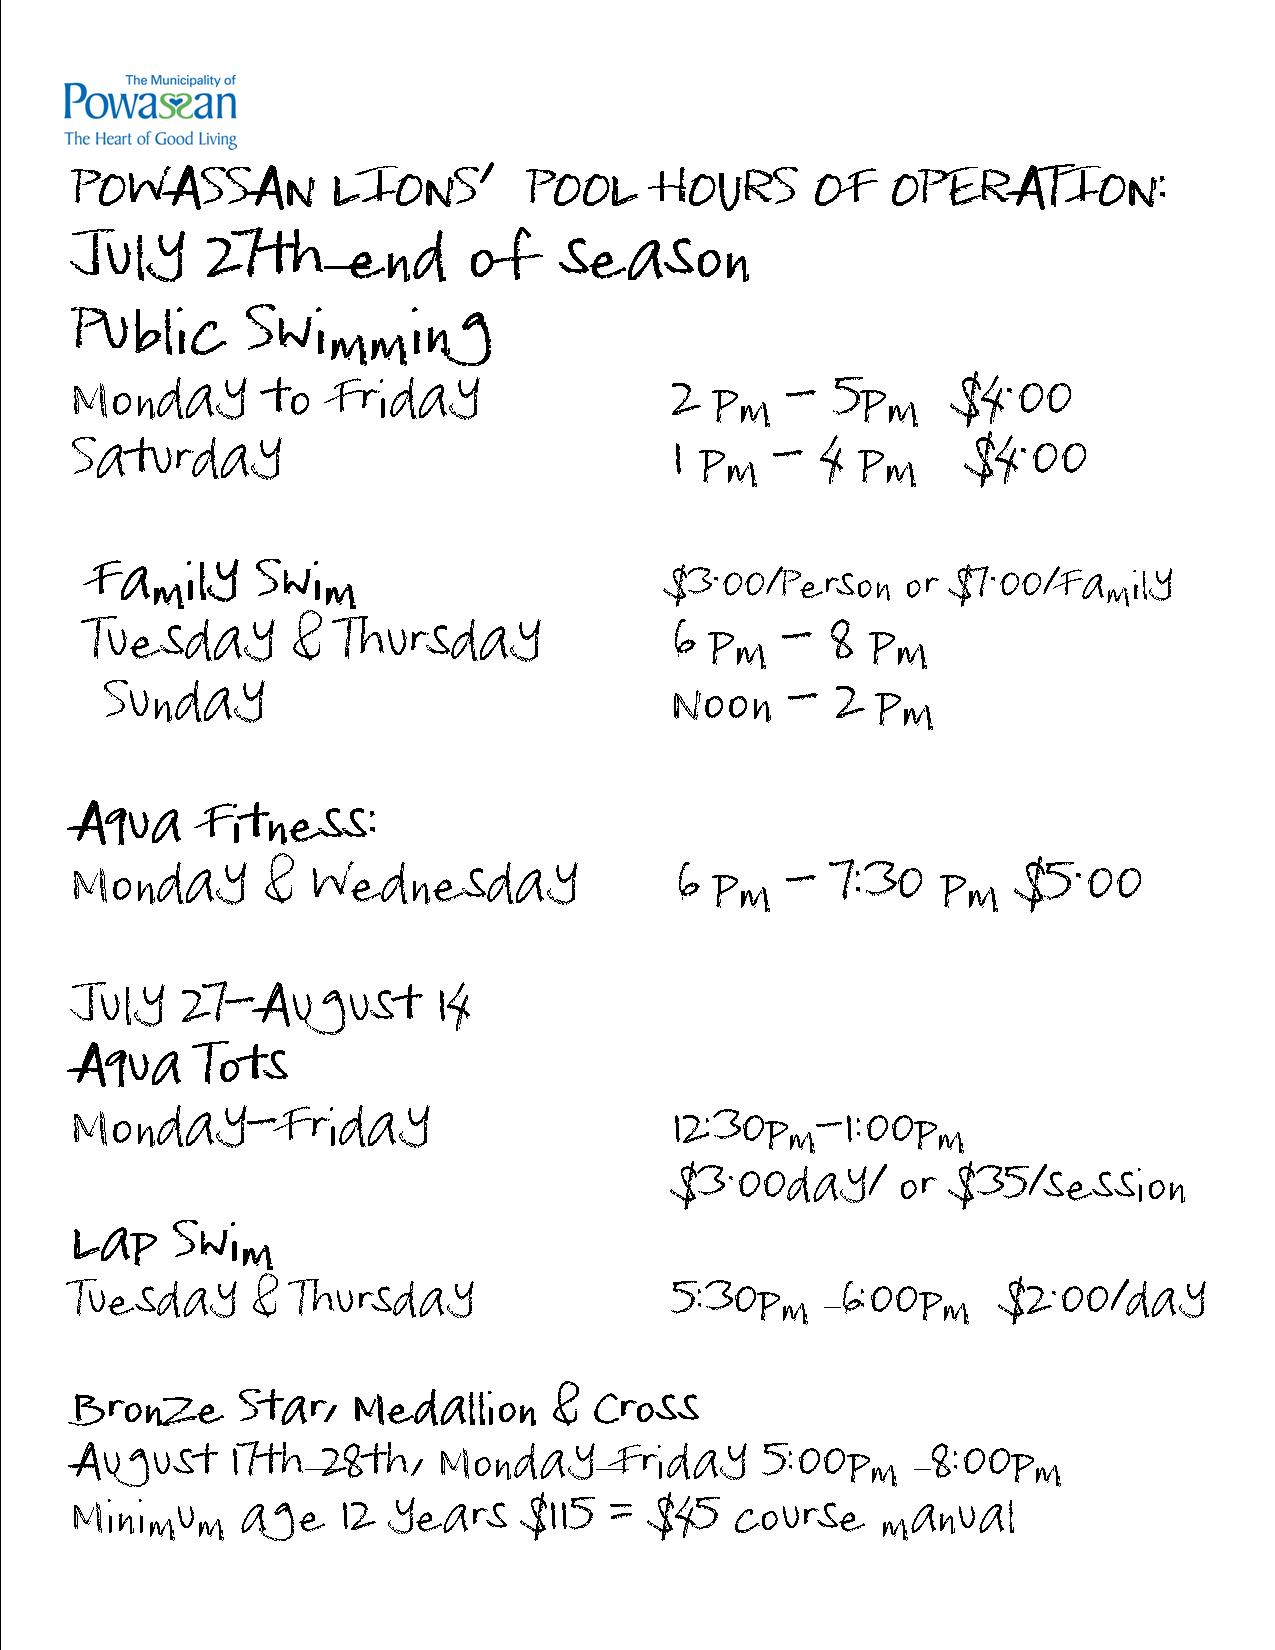 The Municipality of
Powassan
The Heart of Good Living
POWASSAN LIONS' POOL HOURS OF OPERATION:
July 27th-end of season
Public Swimming
Monday to Friday 2 Pm - 5Pm $4.00
Saturday 1 Pm - 4 Pm $4.00
Family Swim $3.00/Person or $7.00/Family
Tuesday & Thursday 6 Pm - 8 Pm
Sunday Noon - 2 Pm
Aqua Fitness:
Monday & Wednesday 6 Pm - 7:30 Pm $5.00
July 27-August 14
Aqua Tots
Monday-Friday 12:30pm-1:00pm
$3.00day/ or $35/session
Lap Swim
Tuesday & Thursday 5:30pm -6:00pm $2.00/day
Bronze Star, Medallion & Cross
August 17th-28th, Monday-Friday 5:00pm -8:00pm
Minimum age 12 years $115 = $45 course manual